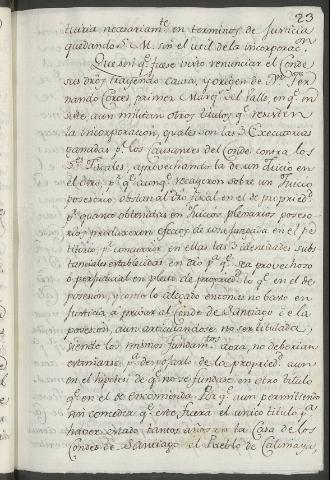 23
tiuria necesariam.te en terminos de Justicia
quedando S. M. sin el util de la incorporac.on
Que sin q.e fuese visto renunciar el Conde
sus dros trayendo causa, y origen de D.n Fer
nando Cortes primer Marq.s del Valle, en q.n re
side, aun militan otros titulos q.e resisten
la incorporacion, quales son las 3 Executorias
ganadas p.r los Causantes del Conde contra los
S.res Fiscales, aprovechando la de un Juicio en
el otro, p.r q.e aunq.e recayeron sobre un Juicio
posesorio, obstan al dro fiscal en el de propried.d
p.r quanto obtenidas en Juicios plenarios poseso-
rios produxeron efectos de cosa juzgada en el pe
titorio, p.r concurrir en ellas las 3 identidades subs
tanciales establecidas en dro p.a q.e sea provechoso
ò perjudicial en pleito de propried.d lo q.e en el de
posesion, y como lo alegado entonces no bastó en
Justicia a privar al Conde de Santiago de la
posesion, aun articulandose no ser titulada,
siendo los mismos fundam.tos aora, no deberian
estimarse p.a despojarlo de la propried.d aun
en el hipotesi de q.e no se fundase en otro titulo
q.e en el de encomienda. Por q.e aun permitiendo
sin conceder q.e este fuera el unico titulo p.a
haver estado tantos años en la Casa de los
Condes de Santiago el Pueblo de Calimaya,